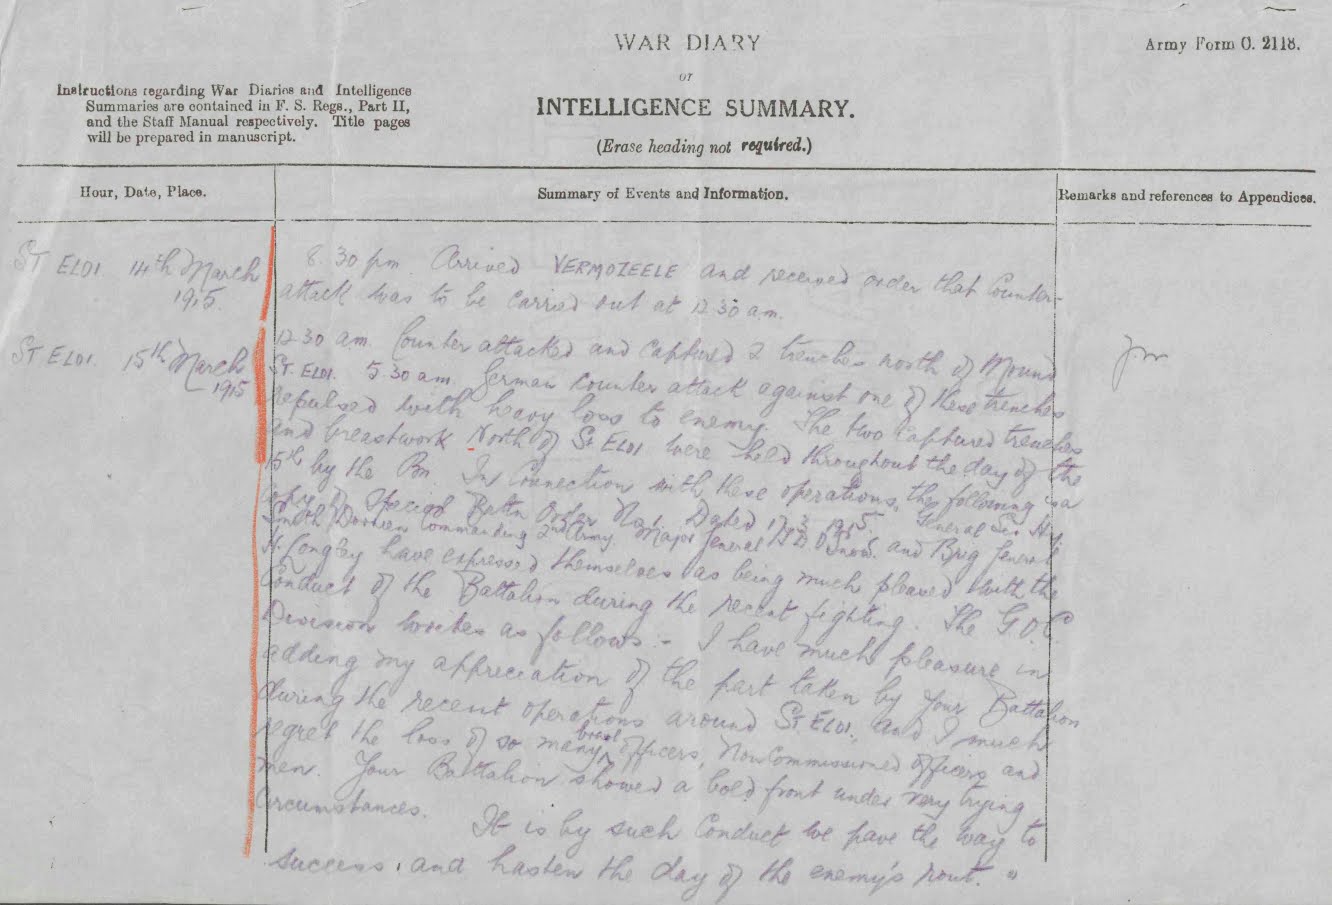 WAR DIARY
Army Form C. 2118.
or
Instructions regarding War Diaries and Intelligence
Summaries are contained in F. S. Regs., Part II,
and the Staff Manual respectively. Title pages
will be prepared in manuscript.
INTELLIGENCE SUMMARY.
(Erase heading not required.)
Hour, Date, Place.
Summary of Events and Information.
Remarks and references to Appendices.
ST ELOI. 14th March
1915.
8. 30 pm. Arrived VERMOZEELE and received order that Counter-
attack was to be carried out at 12 30 a.m.
ST ELOI. 15th March
1915
12 30 am. Counter attacked and captured 2 trenches north of Mound
ST ELOI. 5.30 am. German Counter attack against one of these trenches
repulsed with heavy loss to enemy. The two captured trenches
and breastwork North of St ELOI were held throughout the day of the
15th by the Bn. In Connection with these operations, the following is a
copy of Special Battn Order No 1. Dated 17.3.1915. General Sir H.
Smith Dorrien Commanding 2nd Army Major General D'O Snow. and Brig General
H. Longley have expressed themselves as being much pleased with the
Conduct of the Battalion during the recent fighting. The G.O.C.
Division writes as follows:- I have much pleasure in
adding my appreciation of the part taken by your Battalion
during the recent operations around ST ELOI, and I much
regret the loss of so many brave officers, Non Commissioned officers and
men. Your Battalion showed a bold front under very trying
Circumstances.
It is by such Conduct we pave the way to
success, and hasten the day of the enemy's rout. "